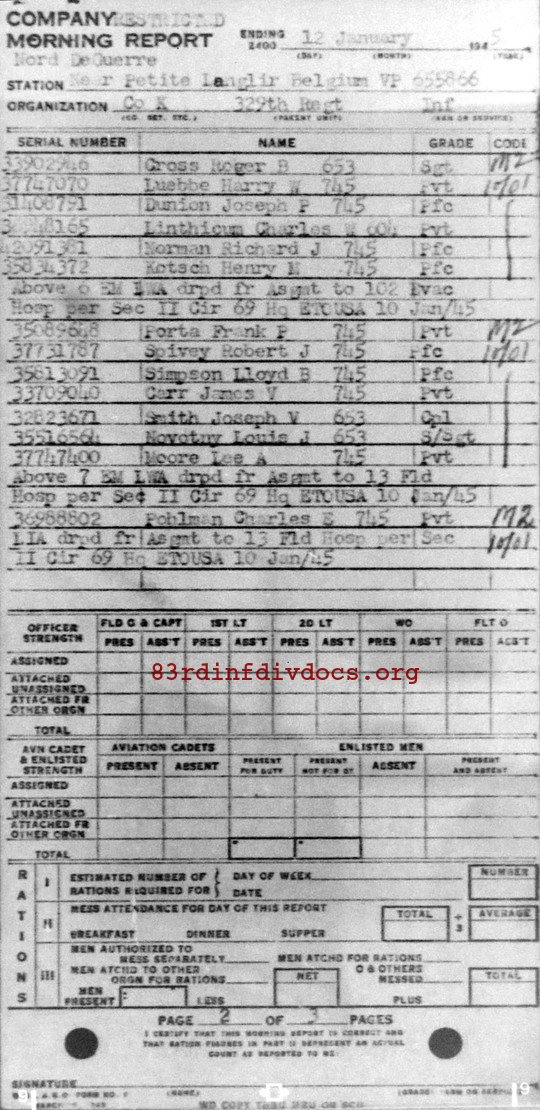 COMPANY RESTRICTED
MORNING REPORT ENDING 2400 12 January 1945
(DAY) (MONTH) (YEAR)
Nord DeGuerre
STATION Near Petite Langlir Belgium VP 655866
ORGANIZATION Co K 329th Regt Inf
(CO. DET. ETC.) (PARENT UNIT) (ARM OR SERVICE)
SERIAL NUMBER NAME GRADE CODE
33902946 Gross Roger B 653 Sgt M2
37747070 Luebbe Harry W 745 Pvt 10/01
31408791 Dunion Joseph P 745 Pfc
Linthicum Charles W 604 Pvt
42091381 Norman Richard J 745 Pfc
35834372 Kotsch Henry M 745 Pfc
Above 6 EM LWA drpd fr Asgmt to 102 Evac
Hosp per Sec II Cir 69 Hq ETOUSA 10 Jan/45
35089648 Porta Frank P 745 Pvt M2
37731787 Spivey Robert J 745 Pfc 10/01
35813091 Simpson Lloyd B 745 Pfc
33709040 Carr James V 745 Pvt
32823671 Smith Joseph V 653 Cpl
35516564 Novotny Louis J 653 S/Sgt
37747400 Moore Lee A 745 Pvt
Above 7 EM LWA drpd fr Asgmt to 13 Fld
Hosp per Sec II Cir 69 Hq ETOUSA 10 Jan/45
36988802 Pohlman Charles E 745 Pvt M2
LIA drpd fr Asgmt to 13 Fld Hosp per Sec 10/01
II Cir 69 Hq ETOUSA 10 Jan/45
OFFICER STRENGTH FLD O & CAPT 1ST LT 2D LT WO FLT O
PRES ABS'T PRES ABS'T PRES ABS'T PRES ABS'T PRES ABS'T
ASSIGNED
83rdinfdivdocs.org
ATTACHED UNASSIGNED
ATTACHED FR OTHER ORGN
TOTAL
AVN CADET & ENLISTED STRENGTH AVIATION CADETS ENLISTED MEN
PRESENT ABSENT PRESENT FOR DUTY PRESENT NOT FOR DY ABSENT PRESENT AND ABSENT
ASSIGNED
ATTACHED UNASSIGNED
ATTACHED FR OTHER ORGN
TOTAL
RATIONS
I ESTIMATED NUMBER OF DAY OF WEEK NUMBER
RATIONS REQUIRED FOR DATE
II MESS ATTENDANCE FOR DAY OF THIS REPORT TOTAL ÷ 3 AVERAGE
BREAKFAST DINNER SUPPER
III MEN AUTHORIZED TO MESS SEPARATELY MEN ATCHD FOR RATIONS
MEN ATCHD TO OTHER ORGN FOR RATIONS NET O & OTHERS MESSED TOTAL
MEN PRESENT LESS PLUS
PAGE 2 OF 3 PAGES
I CERTIFY THAT THIS MORNING REPORT IS CORRECT AND
THAT RATION FIGURES IN PART III REPRESENT AN ACTUAL
COUNT AS REPORTED TO ME:
SIGNATURE
(NAME) (GRADE